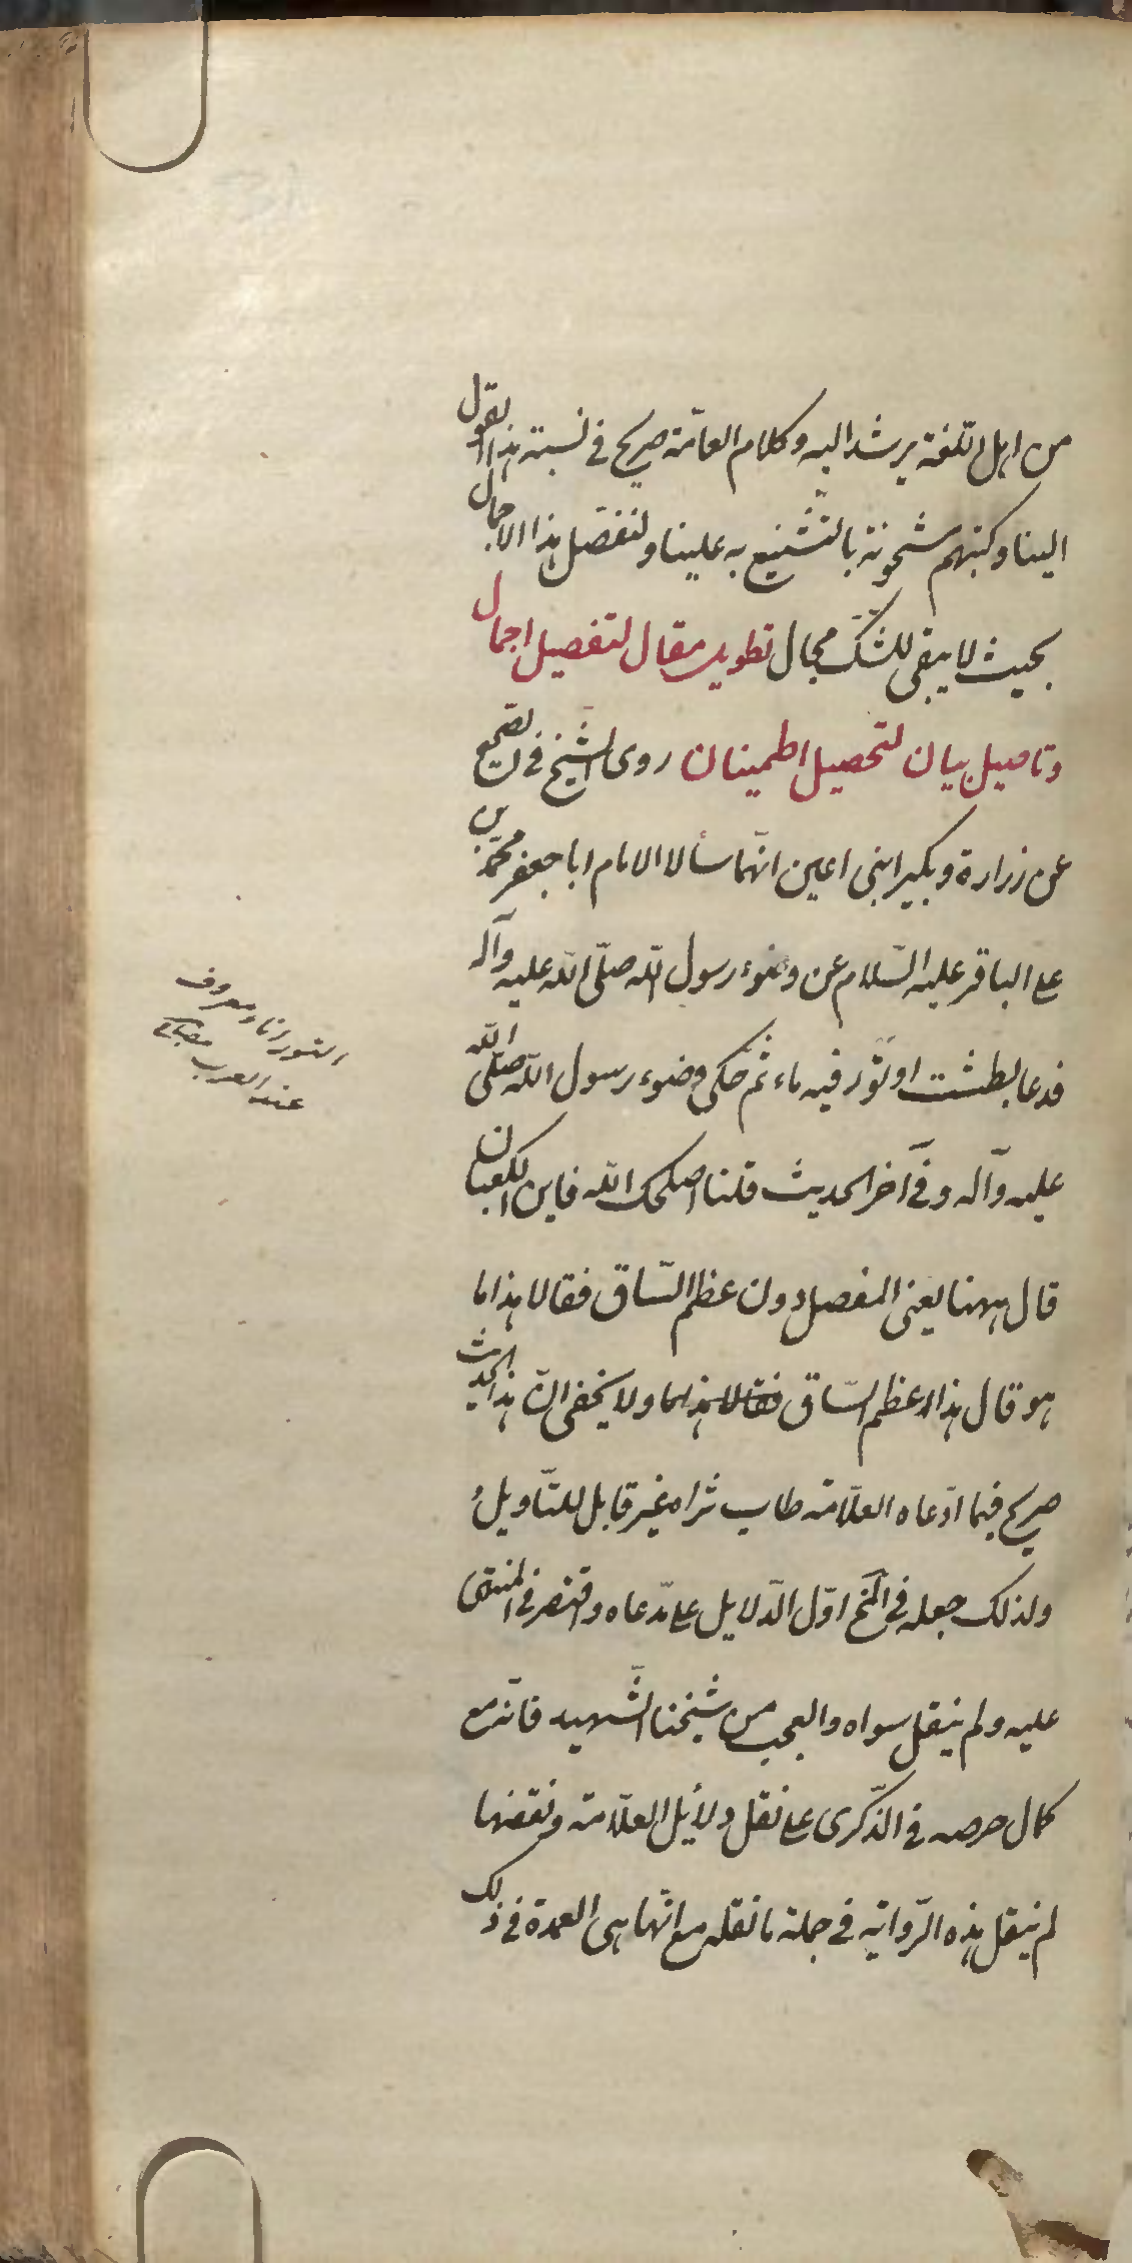 من اهل اللغة يرشد اليه وكلام العامّة صريح في نسبة هذا القول
الينا وكتبهم مشحونة بالتّشنيع به علينا ولنفصّل هذا الاجمال
بحيث لا يبقى للشّكّ مجال تطويل مقال لتفصيل اجمال
وتاصيل بيان لتحصيل اطمينان روى الشّيخ في الصّحيح
عن زرارة وبكير ابنى اعين انّهما سألا الامام ابا جعفر محمّد بن
على الباقر عليه السّلام عن وضوء رسول اللّه صلّى اللّه عليه وآله
فدعا بطشت او تَوْر فيه ماء ثم حكى وضوء رسول اللّه صلّى اللّه
عليه وآله وفى آخر الحديث قلنا اصلحك اللّه فاين الكعبان
قال ههنا يعنى المفصل دون عظم السّاق فقالا هذا ما
هو قال هذا عظم السّاق فقالا هذا ما ولا يخفى انّ هذا الحديث
صريح فيما ادّعاه العلّامة طاب ثراه غير قابل للتّاويل
ولذلك جعله في المخ اوّل الدّلايل على مدّعاه واقتصر في المنتهى
عليه ولم ينقل سواه والعجب من شيخنا الشّهيد فانّه مع
كمال حرصه في الذّكرى على نقل دلايل العلّامة ونقضها
لم ينقل هذه الرّواية في جملة ما نقله مع انّها هى العمدة في ذلك
التور اناء معروف
عند العرب